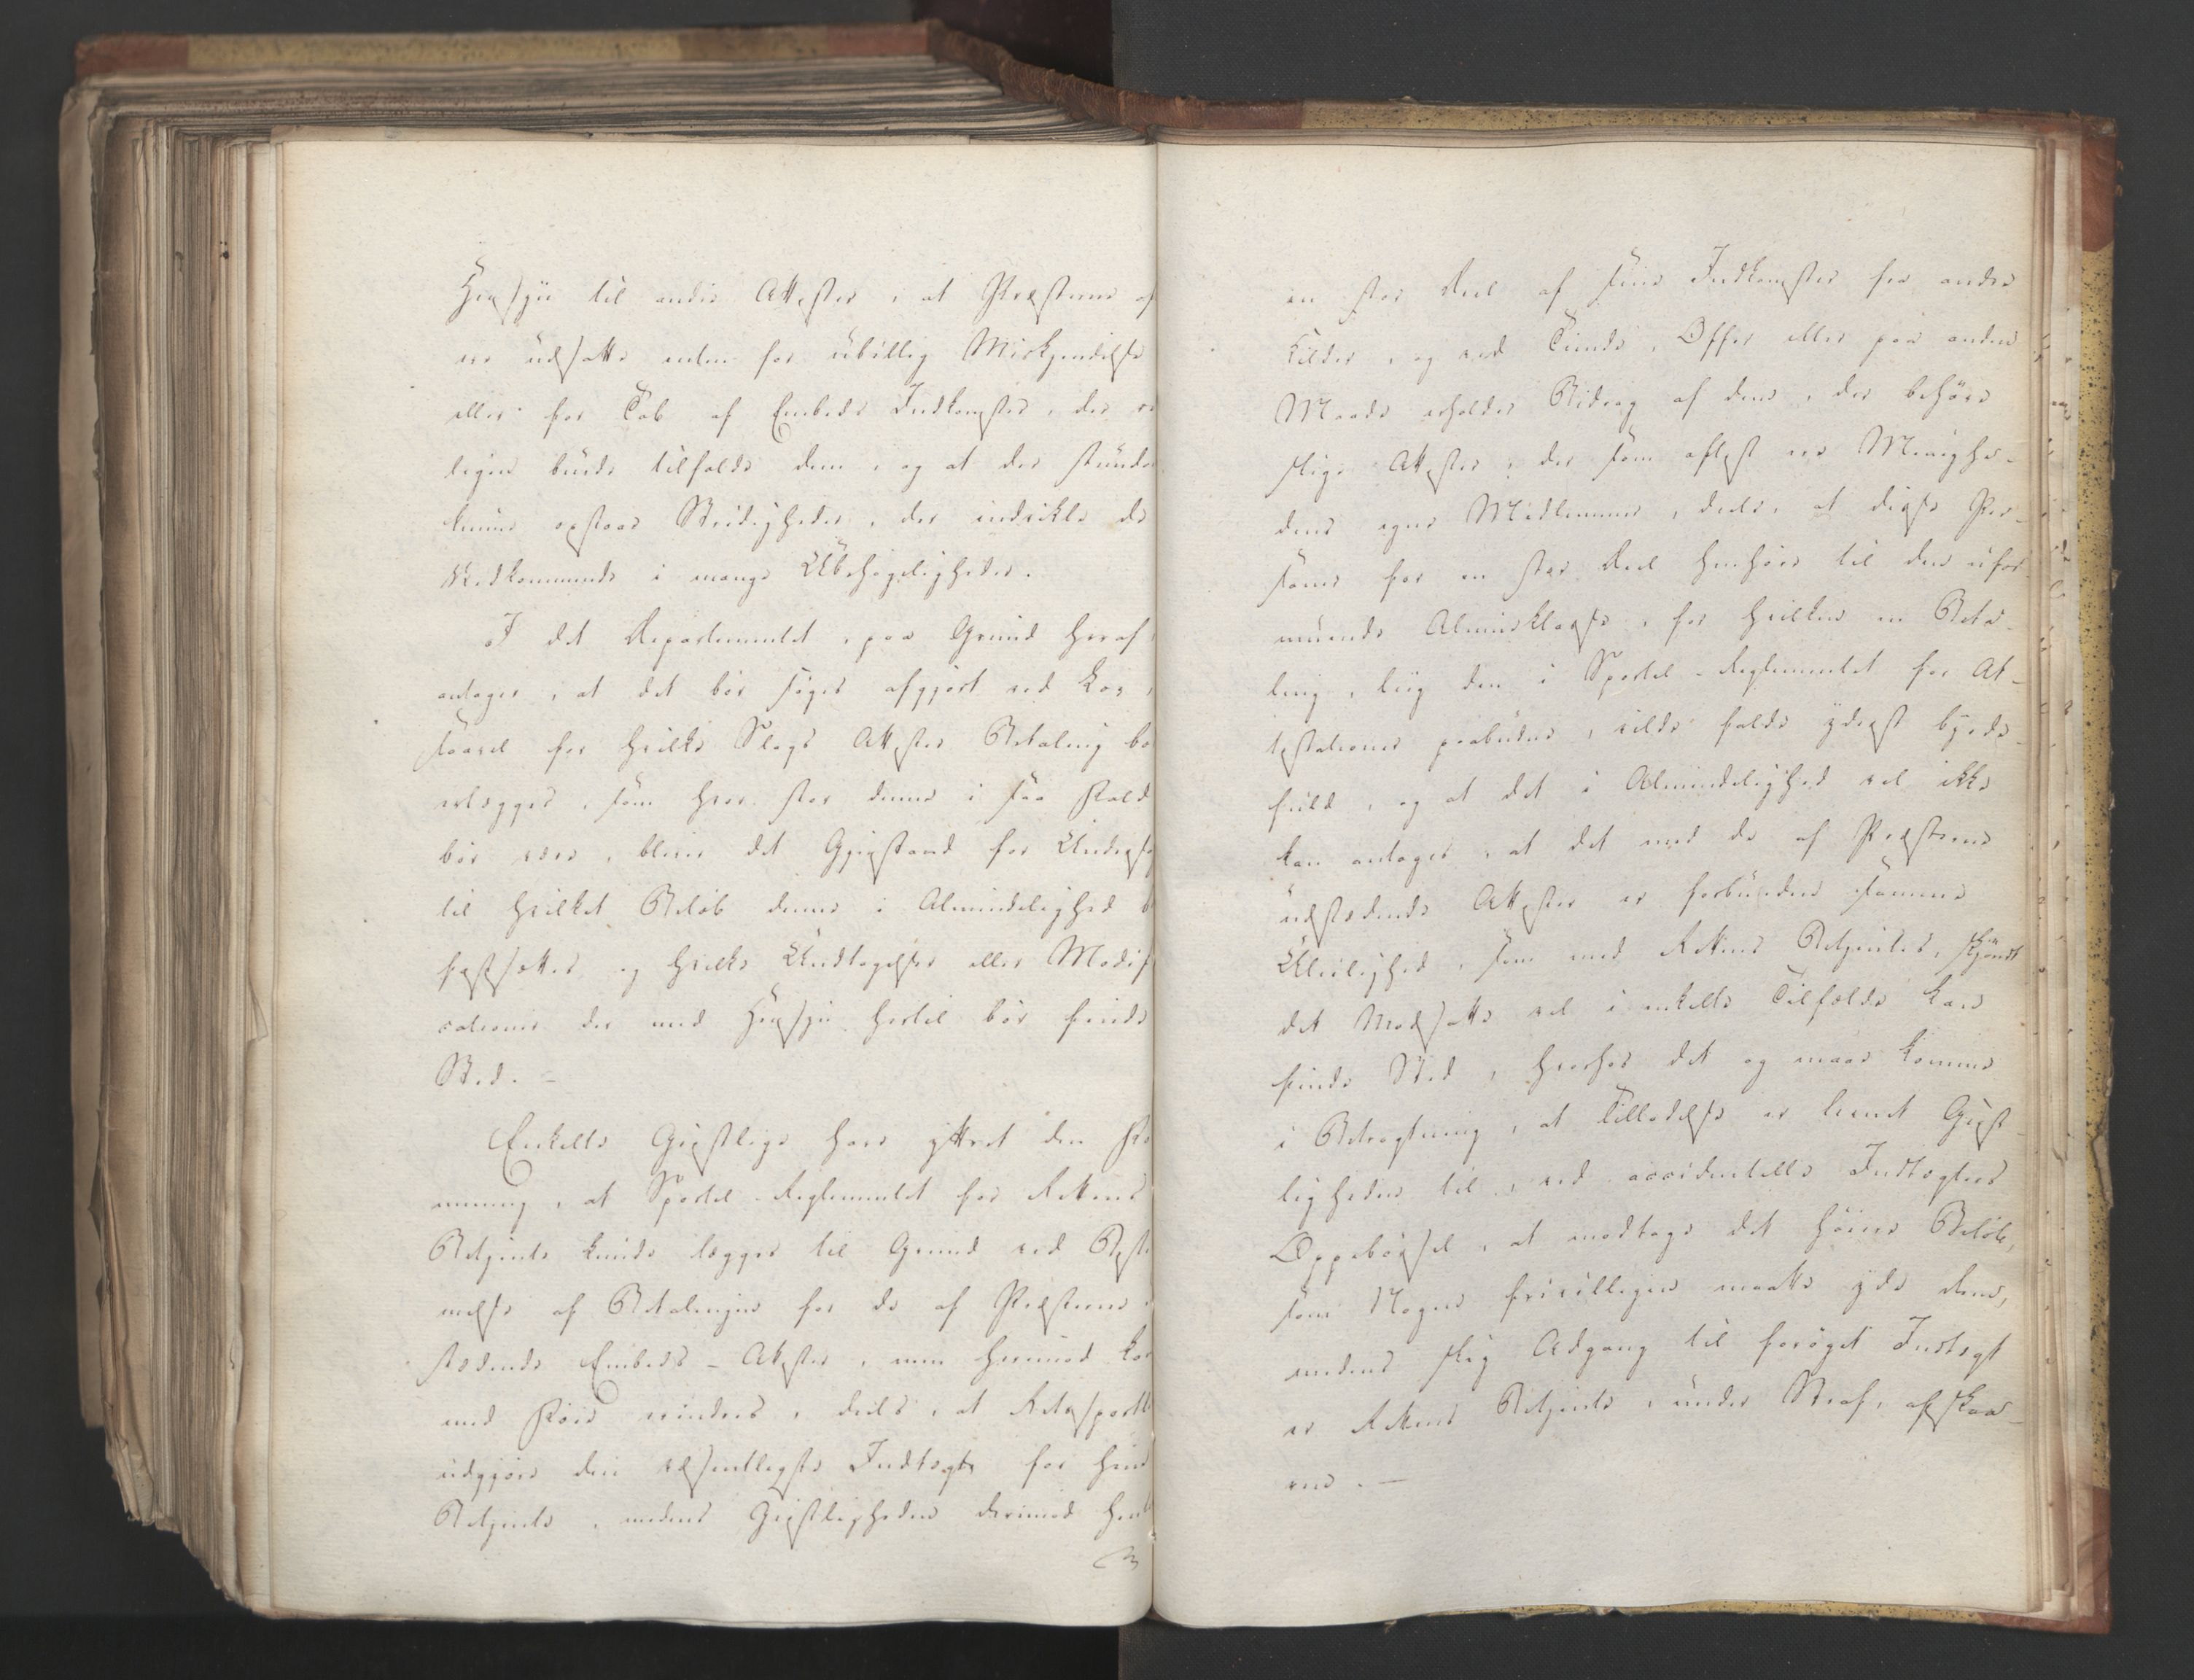 Hensyn til andre Attester, at Præsterne of
ere udsatte enten for ubillig Miskjendelse
eller for Tab af Embeds Indkomster, der re
ligen burde tilfalde dem, og at der stunde
kunne opstaae Stridigheder, der indvikle de
Vedkommende i mange Ubehageligheder.
I det Departementet, paa Grund heraf,
antager, at det bör söges afgjort ved Lov,
saavel for hvilke Slags Attester Betaling bö
erlægges, som hvor stor denne i saa Fald
bör være, bliver det Gjenstand for Undersö
til hvilket Belöb denne i Almindelighed b
fastsættes og hvilke Undtagelser eller Modif
cationer der med Hensyn hertil bör finde
Sted. -
Enkelte Geistlige have yttret den For
mening, at Sportel-Reglementet for Rettens
Betjente kunde lægges til Grund ved Beste
melse af Betalingen for de af Præsterne
stædende Embeds-Attester, men herimod kan
med Föie erindres, deels, at Retssportle
udgjöre den væsentligste Indtægt for hine
Betjente, medens Geistligheden derimod hent
en stor Deel af sine Indkomster fra andre
Kilder, og ved Tiende, Offer eller paa anden
Maade erholder Bidrag af dem, der behöve
slige Attester, der som oftest ere Menighe-
dens egne Medlemmer, deels, at disse Per-
soner for en stor Deel henhöre til den ufor-
muende Almueklasse, for hvilken en Beta-
ling, liig den i Sportel-Reglementet for At-
testationer paabudne, vilde falde yderst byrde-
fuld, og at det i Almindelighed vel ikke
kan antages, at det med de af Præsterne
udstædende Attester er forbunden samme
Uleilighed, som med Rettens Betjentes, skjöndt
det Modsatte vel i enkelte Tilfælde kan
finde Sted, hvorhos det og maae komme
i Betragtning, at Tilladelse er levnet Geist-
ligheden til, ved accidentelle Indtægters
Oppebörsel, at modtage det höiere Belöb,
som Nogen frivilligen maatte yde dem,
medens slig Adgang til foröget Indtægt
er Rettens Betjente, under Straf, afskaa-
ren. -